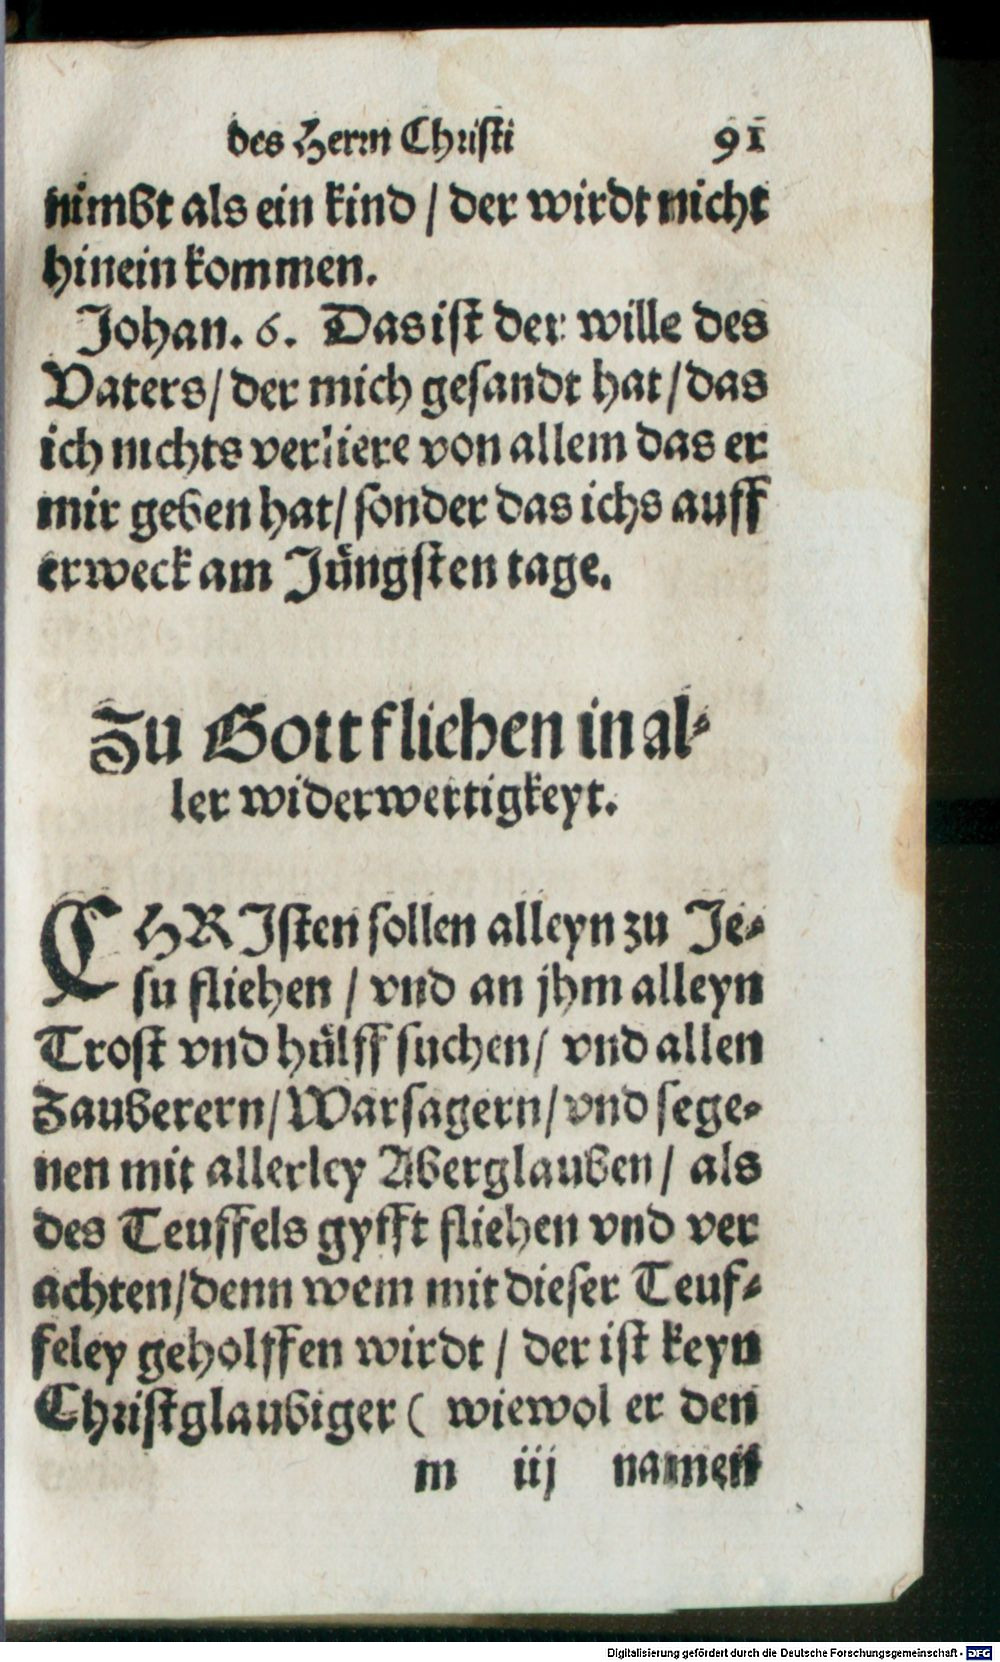 des Herrn Christi 91
nimbt als ein kind / der wirdt nicht
hinein kommen.
Johan. 6. Das ist der wille des
Vaters / der mich gesandt hat / das
ich nichts verliere von allem das er
mir geben hat / sonder das ichs auff
erweck am Jüngsten tage.
Zu Gott fliehen in al-
ler widerwertigkeyt.
CHRIsten sollen alleyn zu Je-
su fliehen / vnd an jhm alleyn
Trost vnd hülff suchen / vnd allen
Zauberern / Warsagern / vnd sege-
nen mit allerley Aberglauben / als
des Teuffels gyfft fliehen vnd ver
achten / denn wem mit dieser Teuf-
feley geholffen wirdt / der ist keyn
Christglaubiger ( wiewol er den
m iij namen
Digitalisierung gefördert durch die Deutsche Forschungsgemeinschaft - DFG